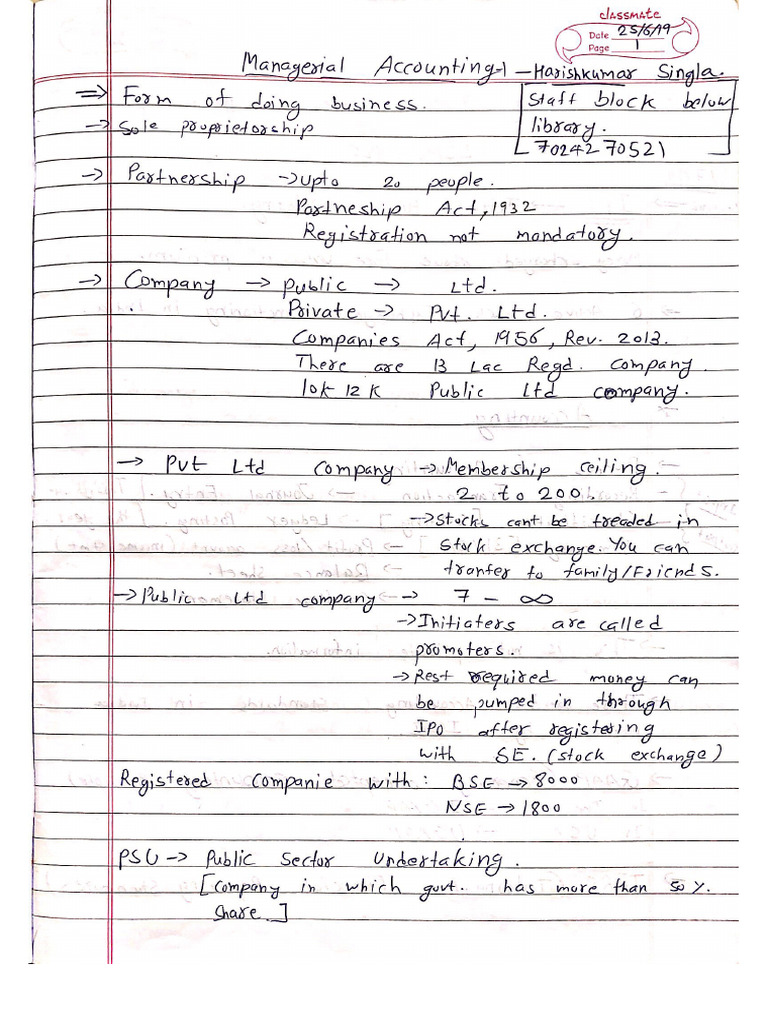 classmate
Date 25/6/19
Page 1
Managerial Accounting-1 - Harishkumar Singla.
⇒ Form of doing business.
Staff block below
library.
7024270521
→ Sole proprietorship
→ Partnership → upto 20 people.
Partneship Act, 1932
Registration not mandatory.
→ Company → Public → Ltd.
Private → Pvt. Ltd.
Companies Act, 1956, Rev. 2013.
There are 13 Lac Regd. company.
10k 12 K Public Ltd company.
→ Pvt Ltd company → Membership ceiling.
2 to 200.
→ Stocks cant be treaded in
Stock exchange. You can
tranfer to family/Friends.
→ Public Ltd company → 7 - ∞
→ Initiaters are called
promoters.
→ Rest required money can
be pumped in through
IPO after registering
with SE. (stock exchange)
Registered Companie with: BSE → 8000
NSE → 1800
PSU → Public Sector Undertaking.
[Company in which govt. has more than 50 %.
share.]